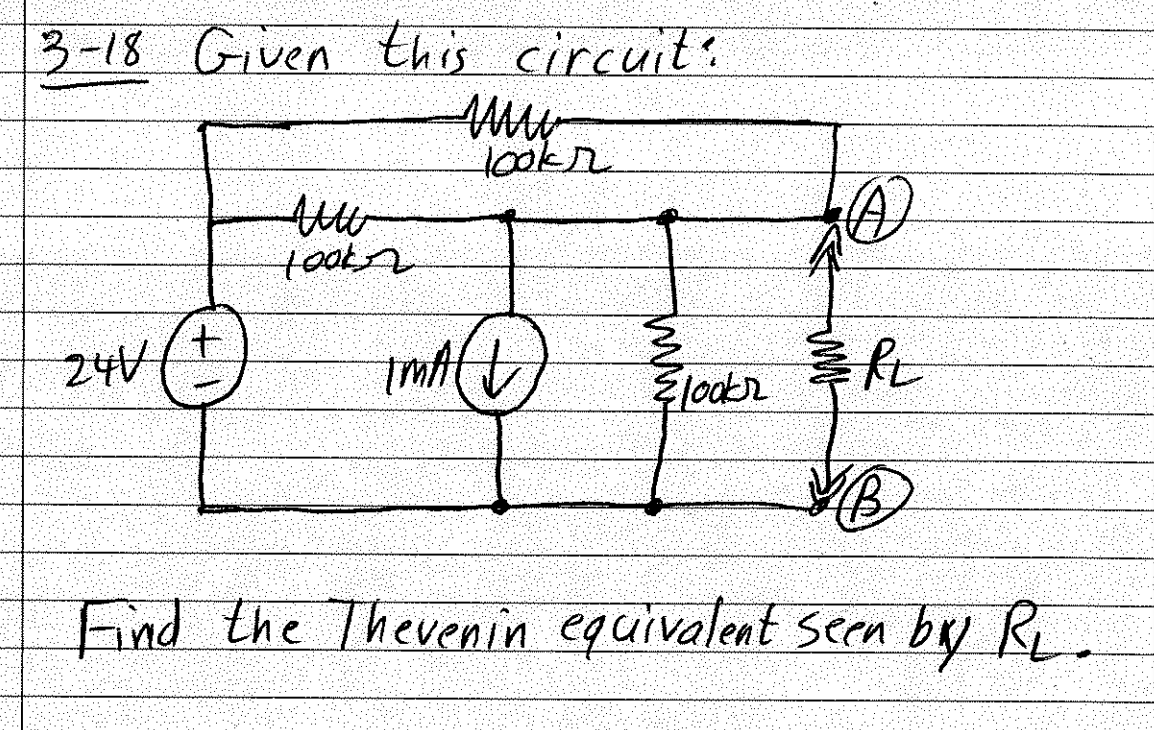 3-18 Given this circuit:
100kΩ
A
100kΩ
24V
+
−
1mA
100kΩ
RL
B
Find the Thevenin equivalent seen by RL.